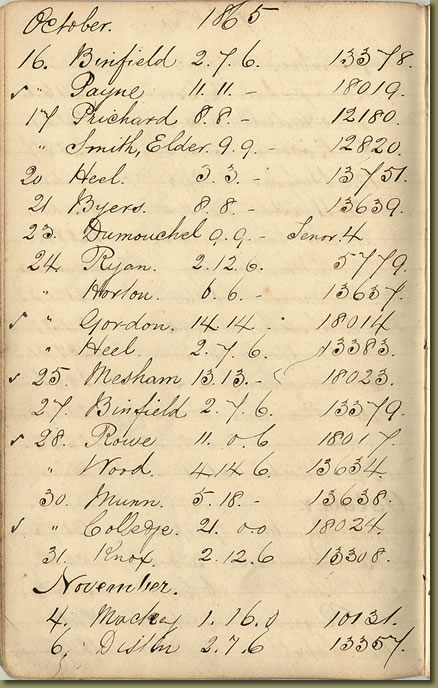 October. 1865
16. Binfield 2.7.6. 13378.
✓ " Payne 11.11. - 18019.
17 Prichard 8.8. - 12180.
" Smith, Elder. 9.9. - 12820.
20 Heel. 3.3. - 13751.
21 Byers. 8.8. - 13639.
23. Dumouchel 9.9. - Tenor. 4
24 Ryan. 2.12.6. 5779.
" Horton. 6.6. - 13637.
✓ " Gordon. 14.14. 18014
" Heel. 2.7.6. 13383.
✓ 25. Mesham 13.13. - 18023.
27. Binfield 2.7.6. 13379.
✓ 28. Rowe 11.0.6 18017.
" Wood. 4.14.6. 13634.
30. Munn. 5.18. - 13638.
✓ " College. 21.0.0 18024.
31. Knox. 2.12.6 13308.
November.
4. Mackey 1.16.0 10131.
6, Distin 2.7.6 13357.